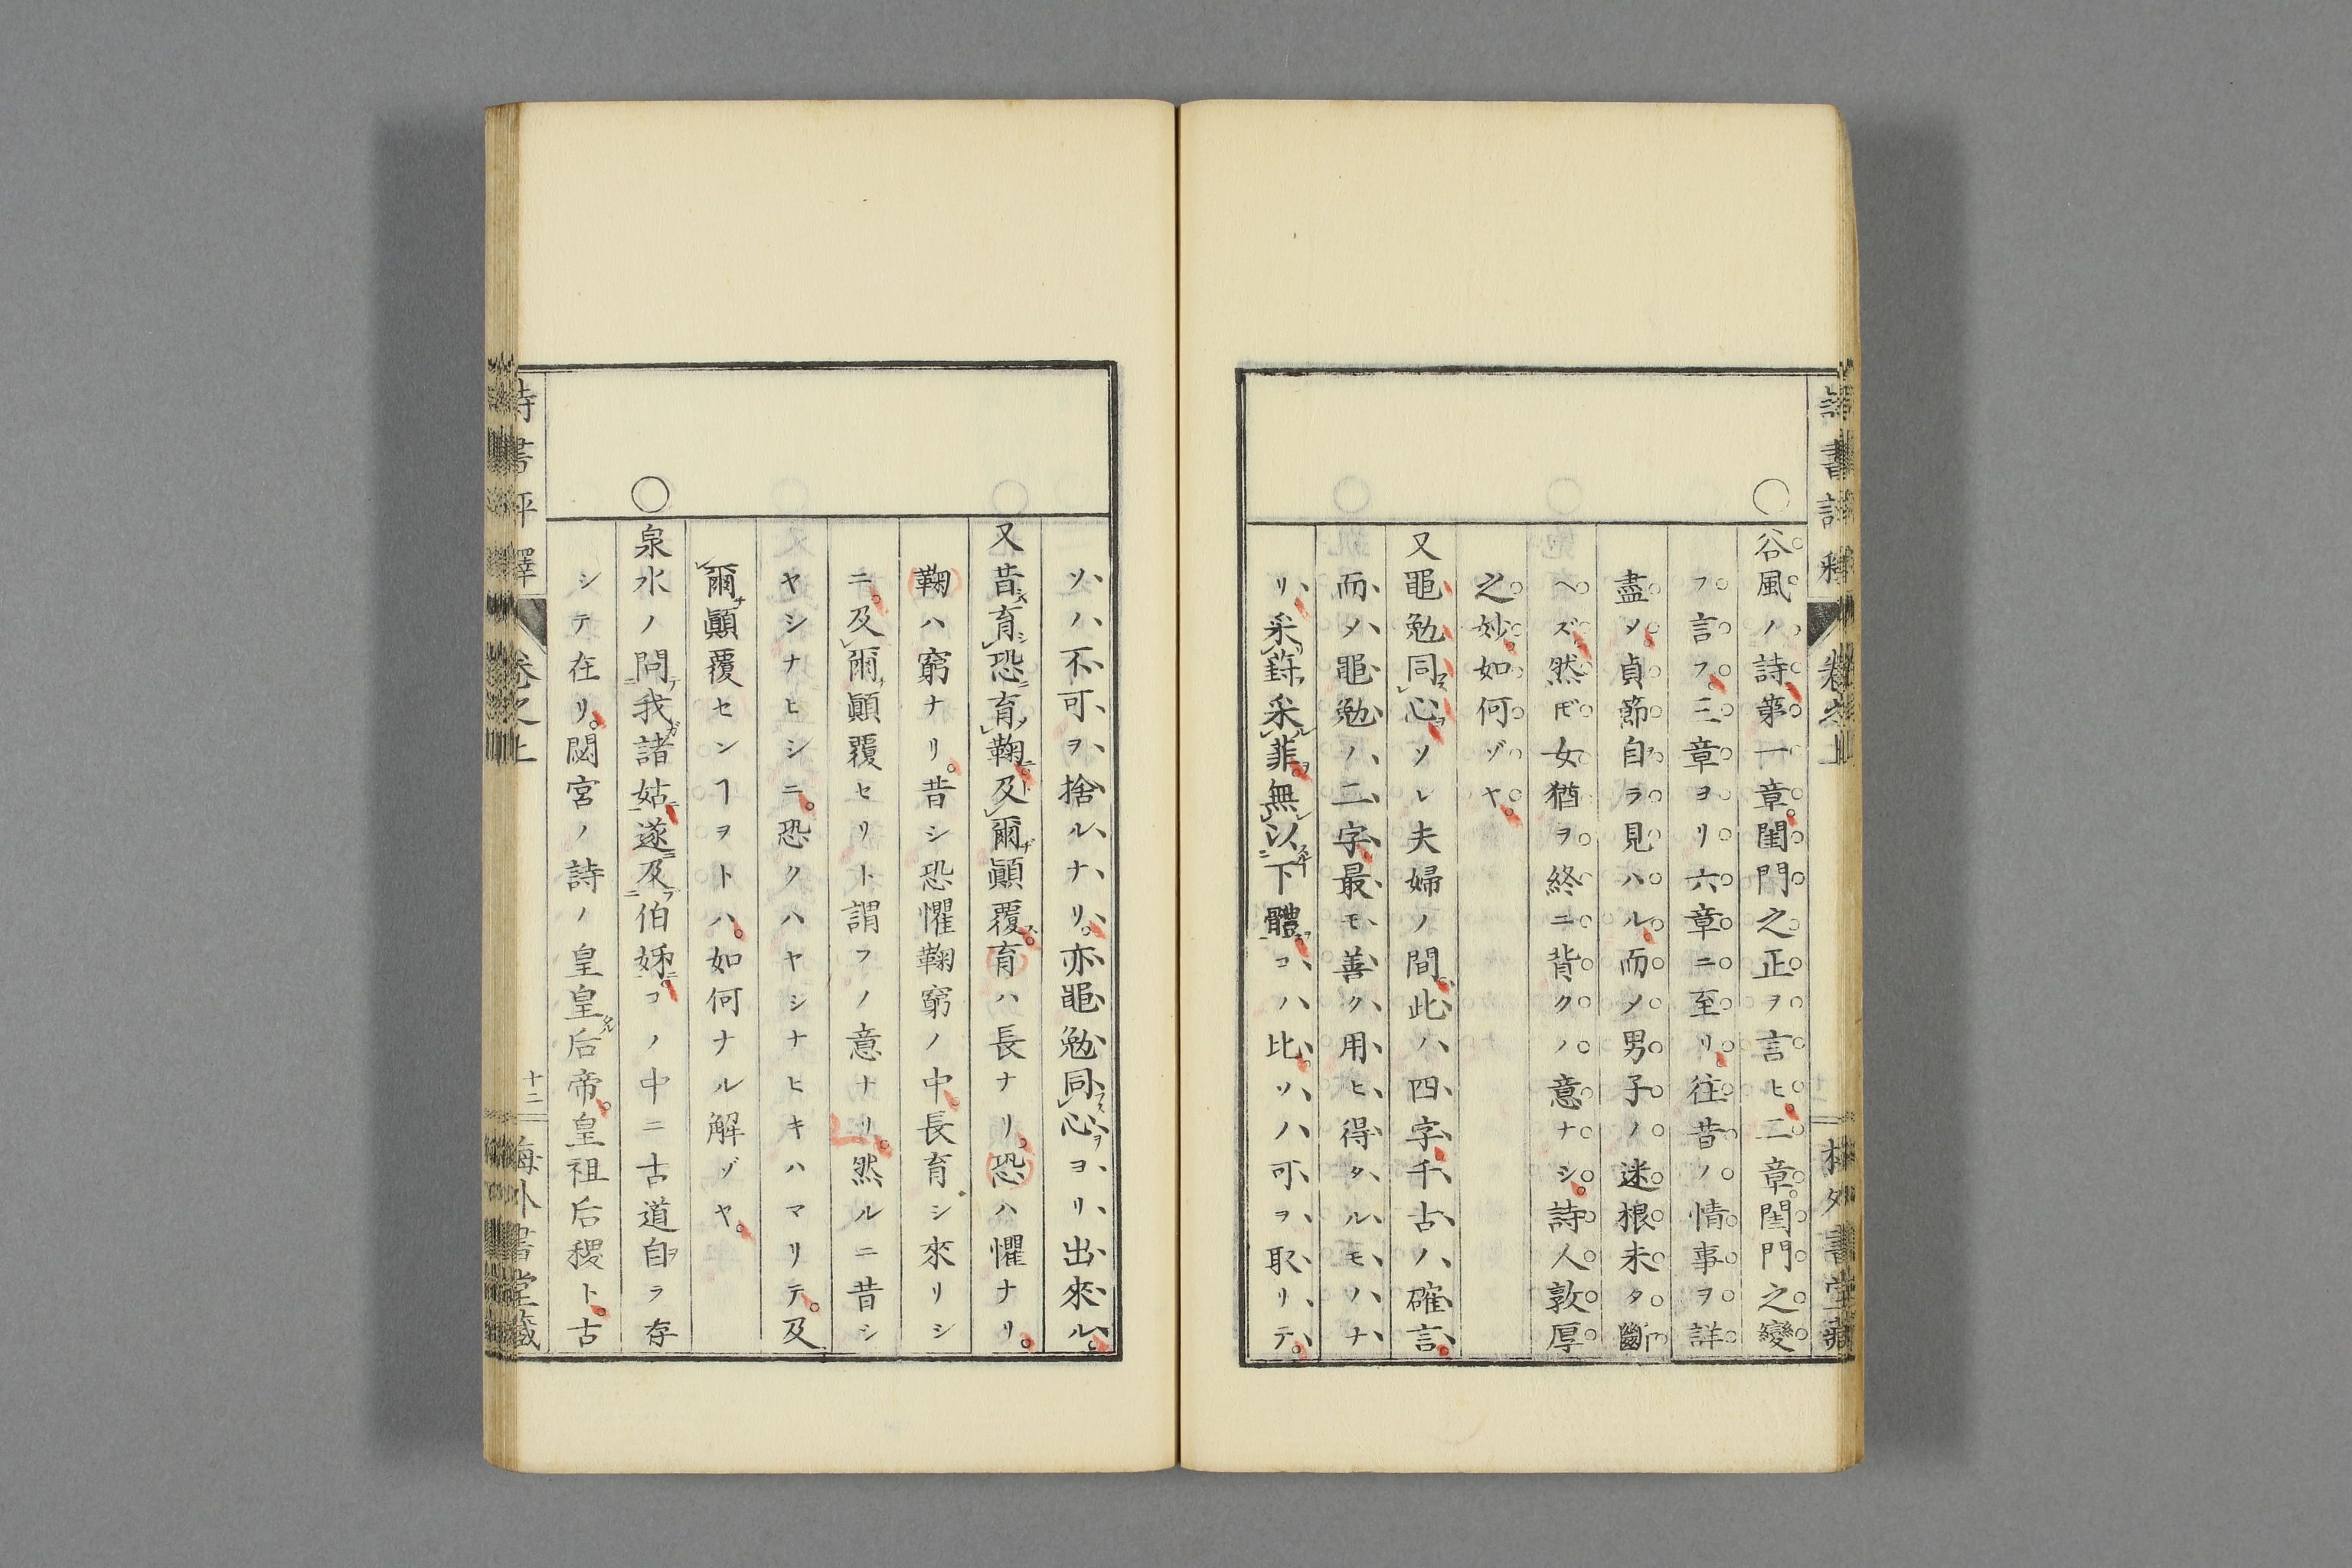 詩書評釋 卷之上
谷風ノ詩第一章閨門之正ヲ言ヒ二章閨門之變
フ言フ三章ヨリ六章ニ至リ往昔ノ情事ヲ詳
盡ソ貞節自ラ見ハル而メ男子ノ迷根未タ斷
ヘズ然𪜈女猶ヲ終ニ背クノ意ナシ詩人敦厚
之妙如何ゾヤ
又黽勉同心ソレ夫婦ノ間此ハ四字千古ノ確言
而メ黽勉ノ二字最モ善ク用ヒ得タルモノナ
リ采葑采菲無以下體コハ比ソノ可ヲ取リテ
ソノ不可ヲ捨ルナリ亦黽勉同心ヨリ出來ル
又昔育恐育鞠及爾顚覆育ハ長ナリ恐ハ懼ナリ
鞠ハ窮ナリ昔シ恐懼鞠窮ノ中長育シ來リシ
ニ及爾顚覆セリト謂フノ意ナリ然ルニ昔シ
ヤシナヒシニ恐クハヤシナヒキハマリテ及
爾顚覆センヿヲトハ如何ナル解ゾヤ
泉水ノ問我諸姑遂及伯姊コノ中ニ古道自ラ存
シテ在リ閟宮ノ詩ノ皇皇后帝皇祖后稷ト古
詩書評釋 卷之上 十二 海外書堂藏